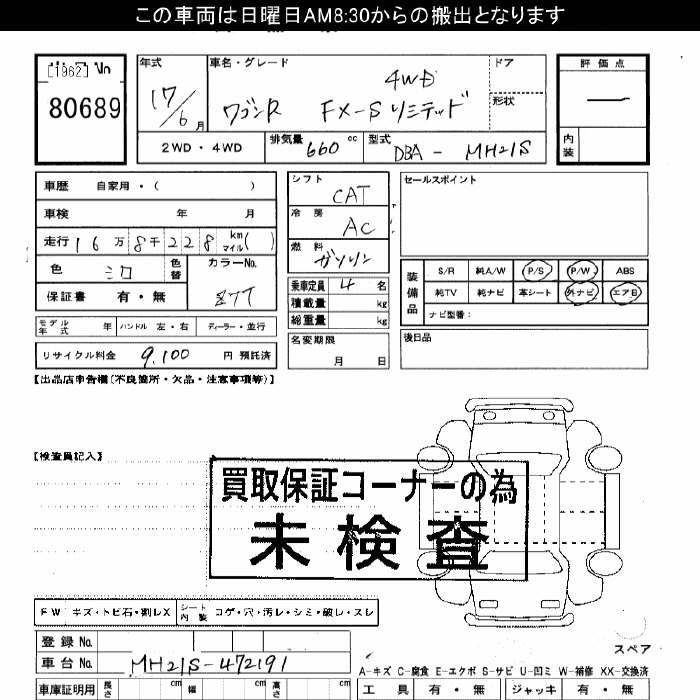 この車両は日曜日AM8:30からの搬出となります
80689
年式
17/6月
車名・グレード
ワゴンR FX-Sリミテッド 4WD
ドア
形状
評価点
内装
2WD・4WD
排気量 660 cc
型式 DBA - MH21S
車歴 自家用・( )
車検 年 月
走行 16万8千228 km マイル( )
色 シロ 色替
カラーNo. Z7T
保証書 有・無
モデル年式 年 ハンドル 左・右 ディーラー・並行
リサイクル料金 9,100 円 預託済
シフト CAT
冷房 AC
燃料 ガソリン
乗車定員 4 名
積載量 kg
総重量 kg
名変期限 月 日
セールスポイント
装備品
S/R 純A/W P/S P/W ABS
純TV 純ナビ 革シート 外ナビ エアB
ナビ型番:
後日品
【出品店申告欄(不良箇所・欠品・注意事項等)】
【検査員記入】
買取保証コーナーの為
未検査
FW キズ・トビ石・割レX
シート内装 コゲ・穴・汚レ・シミ・破レ・スレ
登録No.
車台No. MH21S-472191
スペア
A-キズ C-腐食 E-エクボ S-サビ U-凹ミ W-補修 XX-交換済
車庫証明用 長さ cm 幅 cm 高さ cm
工具 有・無 ジャッキ 有・無